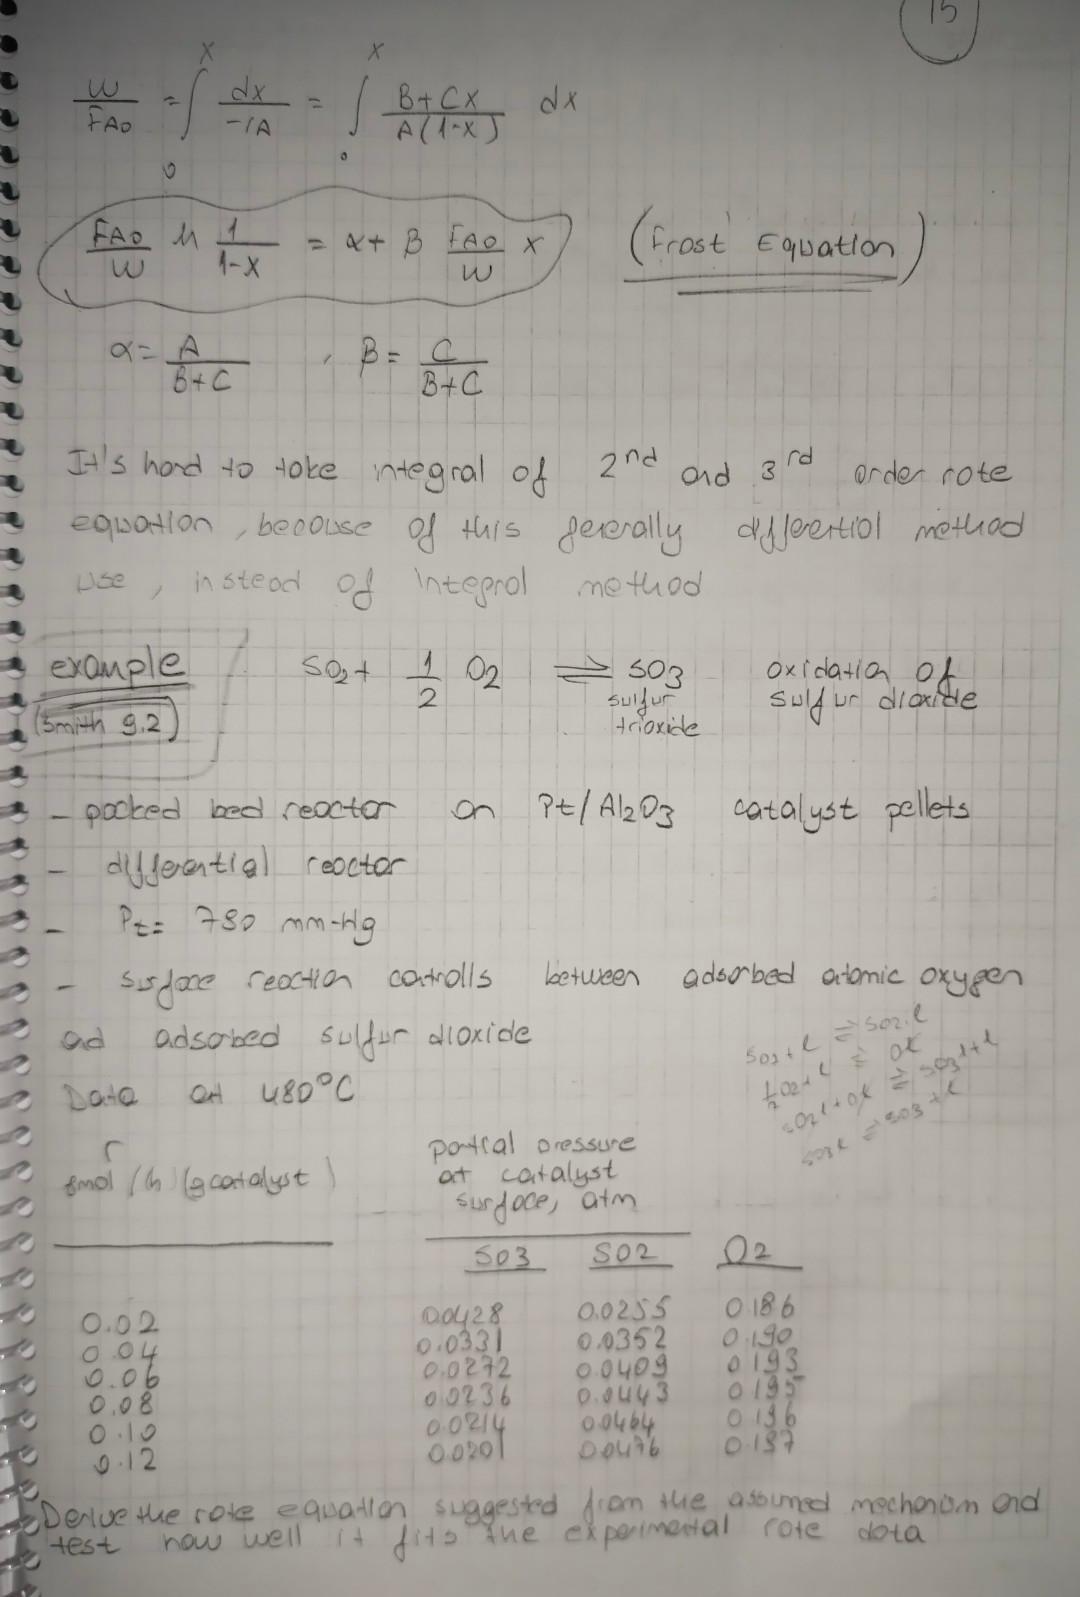 15
W/FA0 = ∫₀ˣ dx/-rA = ∫₀ˣ B+Cx/A(1-x) dx
FA0/W ln 1/1-x = α + β FA0/W x (Frost Equation)
α = A/B+C , β = C/B+C
It's hard to take integral of 2nd and 3rd order rate
equation, because of this generally differential method
use, instead of integral method
example SO2 + 1/2 O2 ⇌ SO3 oxidation of
sulfur sulfur dioxide
(Smith 9.2) trioxide
- packed bed reactor on Pt/Al2O3 catalyst pellets
- differential reactor
- Pt = 790 mm-Hg
- surface reaction controlls between adsorbed atomic oxygen
and adsorbed sulfur dioxide
SO2 + l ⇌ SO2.l
1/2 O2 + l ⇌ Ol
SO2l + Ol ⇌ SO3l + l
SO3l ⇌ SO3 + l
Data at 480°C
r partial pressure
gmol/(h)(gcatalyst) at catalyst
surface, atm
SO3 SO2 O2
0.02 0.0428 0.0255 0.186
0.04 0.0331 0.0352 0.190
0.06 0.0272 0.0409 0.193
0.08 0.0236 0.0443 0.195
0.10 0.0214 0.0464 0.196
0.12 0.0201 0.0476 0.197
Derive the rate equation suggested from the assumed mechanism and
test how well it fits the experimental rate data